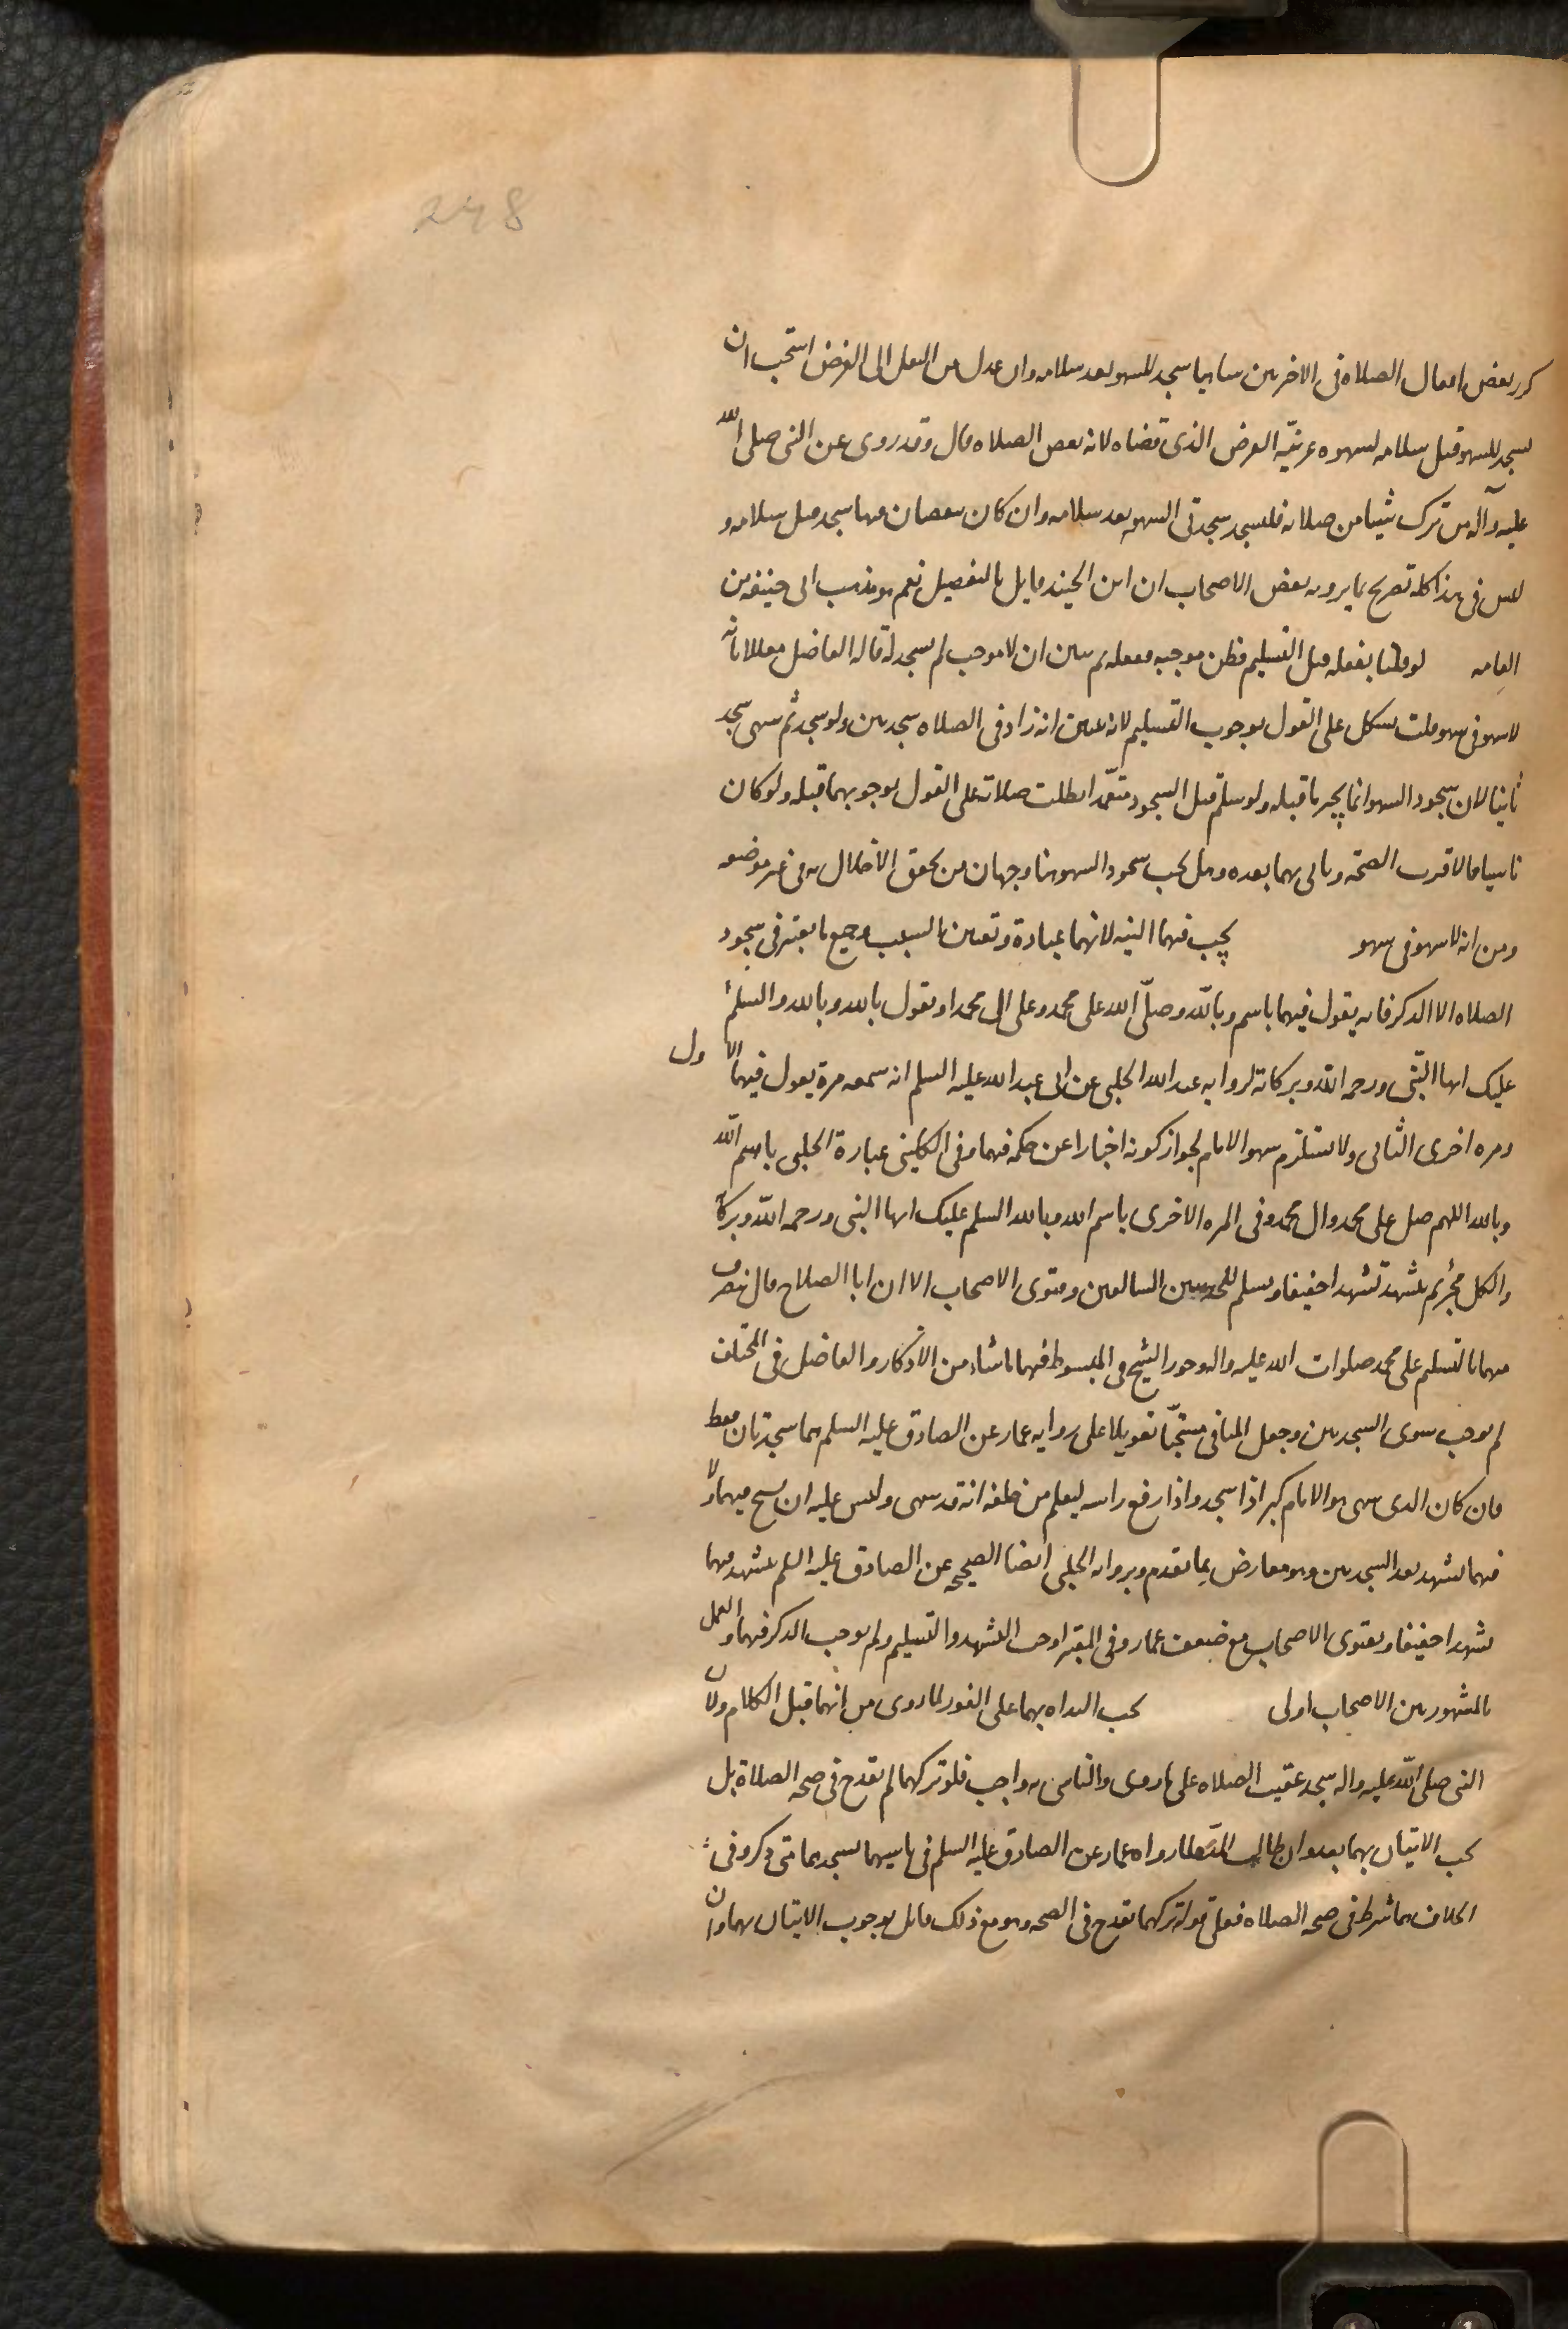 248
كرر بعض افعال الصلاه فى الاخرىىن ساهيا سجد للسهو بعد سلامه وان عدل من النفل الى الفرض استحب ان
يسجد للسهو قبل سلامه لسهوه عن نيّه الفرض الذى قضاه لانه بعض الصلاه قال وقد روى عن النبى صلى الله
عليه وآله من ترك شيئا من صلاته فليسجد سجدتى السهو بعد سلامه وان كان نقصان منها سجد قبل سلامه و
ليس فى هذا كله تصريح بما يرويه بعض الاصحاب ان ابن الجنيد قايل بالتفصيل نعم هو مذهب ابى حنيفه من
العامه لو قلنا بفعله قبل التسليم فظن موجبه ففعله ثم تبين ان لا موجب لم يسجد له قاله الفاضل معللا بانه
لا سهو فى سهو قلت يشكل على القول بوجوب التسليم لانه عين انه زاد فى الصلاه سجدتين ولو سجد ثم سهى سجد
ثانيا لان سجود السهو انما يجبر ما قبله ولو سلّم قبل السجود متعمّدا بطلت صلاته على القول بوجوبهما قبله ولو كان
ناسيا فالاقرب الصحّه وياتى بهما بعده وهل يجب سجود السهو هنا وجهان من تحقق الاخلال به فى غير موضعه
ومن انه لا سهو فى سهو يجب فيهما النيه لانهما عبادة وتعيين السبب وجميع ما يعتبر فى سجود
الصلاه الا الذكر فانه يقول فيهما باسم وباللّه وصلّى الله على محمد وعلى ال محمد او يقول بالله وبالله والسلم
عليك ايها النبّى ورحمه الله وبركاته لروايه عبد الله الحلبى عن ابى عبد الله عليه السلم انه سمعه مرة يقول فيهما الاول
ومره اخرى الثانى ولا يستلزم سهو الامام لجواز كونه اخبارا عن حكمه فيهما وفى الكلينى عبارة الحلبى باسم اللّه
وبالله اللهم صل على محمد وال محمد وفى المره الاخرى باسم الله وبالله السلم عليك ايها النبى ورحمه اللّه وبركا
والكل مجز ثم يتشهد تشهدا خفيفا ويسلم للحديثين السالفين وفتوى الاصحاب الا ان ابا الصلاح قال ينصرف
منهما بالتسليم على محمد صلوات الله عليه واله وجوز الشيخ فى المبسوط فيهما ما شاء من الاذكار والفاضل فى المختلف
لم يوجب سوى السجدتين وجعل الباقى مستحّبا تعويلا على روايه عمار عن الصادق عليه السلم هما سجدتان فقط
فان كان الذى سهى هو الامام كبر اذا سجد واذا رفع راسه ليعلم من خلفه انه قد سهى وليس عليه ان يسبح فيهما ولا
فيهما تشهد بعد السجدتين وهو معارض بما تقدم وبروايه الحلبى ايضا الصحيحه عن الصادق عليه السلم يتشهد فيهما
تشهدا خفيفا وبفتوى الاصحاب مع ضعف عمار وفى المعتبر اوجب التشهد والتسليم ولم يوجب الذكر فيهما والعمل
بالمشهور بين الاصحاب اولى يجب البداه بهما على الفور لما روى من انهما قبل الكلام ولان
النبى صلى اللّه عليه واله سجد عقيب الصلاه على ما روى والتاسى به واجب فلو تركهما لم يقدح فى صحه الصلاة بل
يجب الاتيان بهما بعد وان طالت المده لما رواه عمار عن الصادق عليه السلم فى ناسيهما يسجدهما متى ذكر وفى
الخلاف هما شرط فى صحه الصلاه فعلى قوله تركهما يقدح فى الصحه وهو مع ذلك قايل بوجوب الاتيان بهما وان